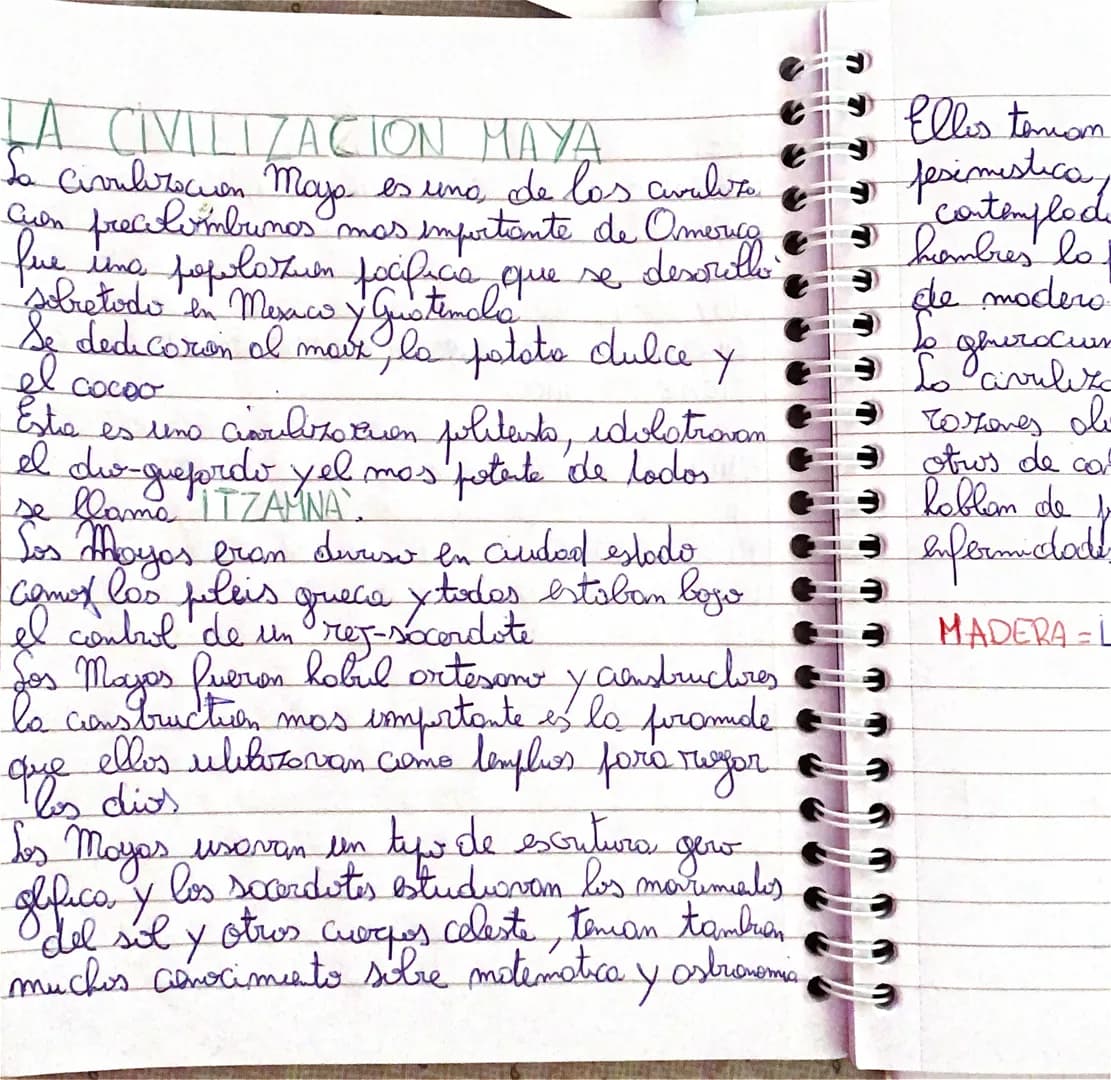 LA CIVILIZACION MAYA
La civilizacion Maya es una de los civiliza
cion precolombinos mas importante de America
fue una popolazion pacifica que se desarolló
sobretodo en Mexico y Guatemala
Se dedicaron al maiz, la patata dulce y
el cacao
Esta es una civilizacion politeista, idolatravan
el dio-guepardo y el mas potente de todos
se llama ITZAMNÀ.
Los Mayas eran diviso en ciudad estado
como las poleis greca y todas estaban bajo
el control de un rej-sacerdote
Los Mayas fueron habil artesano y constructores
la construction mas importante es la piramide
que ellos utilizavan como templios para regar
los dios
Los Mayas usavan un typo de escritura gero
glifica y los sacerdotes estudiavan los movimientos
del sol y otros cuerpos celeste, tenian tambien
muchos conocimiento sobre matematica y astronomia
Ellos tenian
pesimistica,
hombres lo
de madera
La generacion
razones
otros de
hablan de
MADERA =